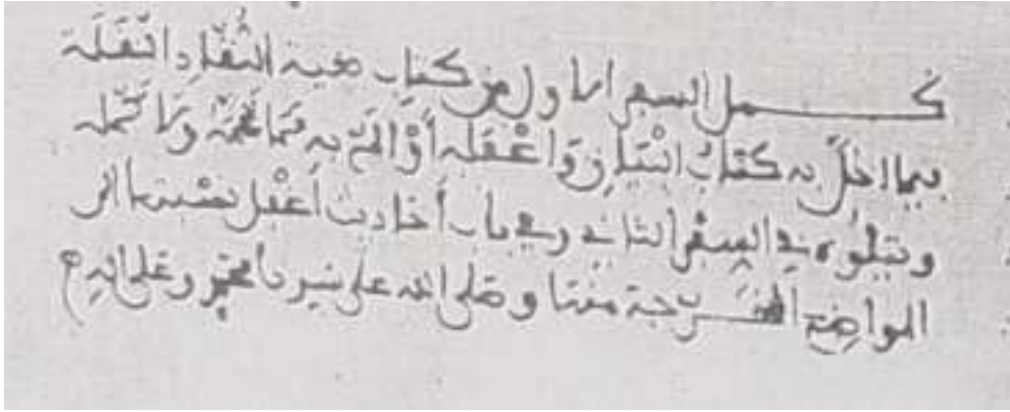 كمل السفر الاول من كتاب بغية النُّقَّاد النَّقَلَة
فيما اخلَّ به كتابُ البَيَان وَاغْفَلَه أَوْ الَمَّ به فما تممه ولا كمّله
ويتلوه في السِّفْر الثاني في باب أحاديث أغْفل نسْبتها الى
المواضع المخرجة منها وصلى الله على سيدنا محمد وعلى اله